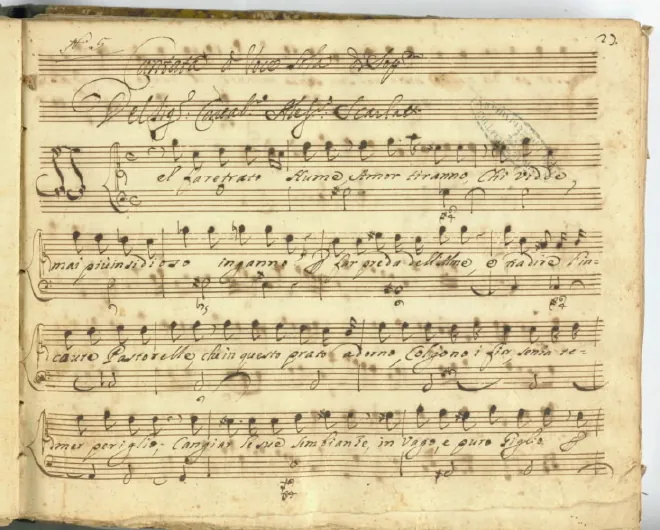 23.
Cantata à Voce Sola
Del Sig.r Caval.r Aless.o Scarlatti
Del faretrato Nume Amor tiranno, Chi vidde
mai più insidioso inganno? P far preda dell'Alme, e tradire l'in-
caute Pastorelle, che in questo prato adorno, Colgono i fior senza te-
mer periglio; Cangiar le sue sembiante, in Vago, e puro Giglio